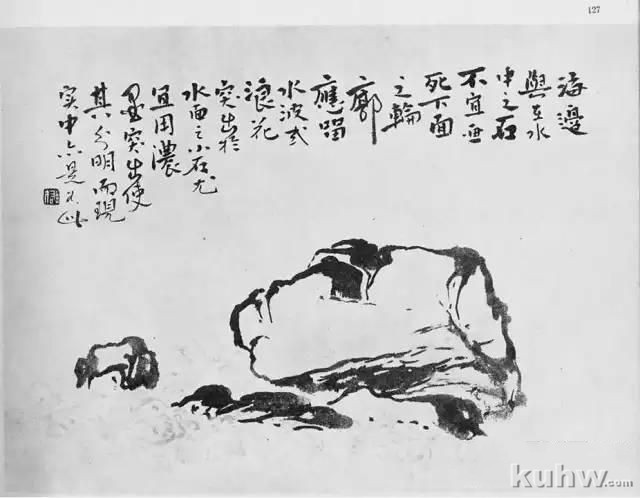 127
海邊
與在水
中之石
不宜画
死下面
之輪
廓
應留
水波或
浪花
突出於
水面之小石尤
宜用濃
墨突出使
其分明而現
实中亦是如此
kuhw.com